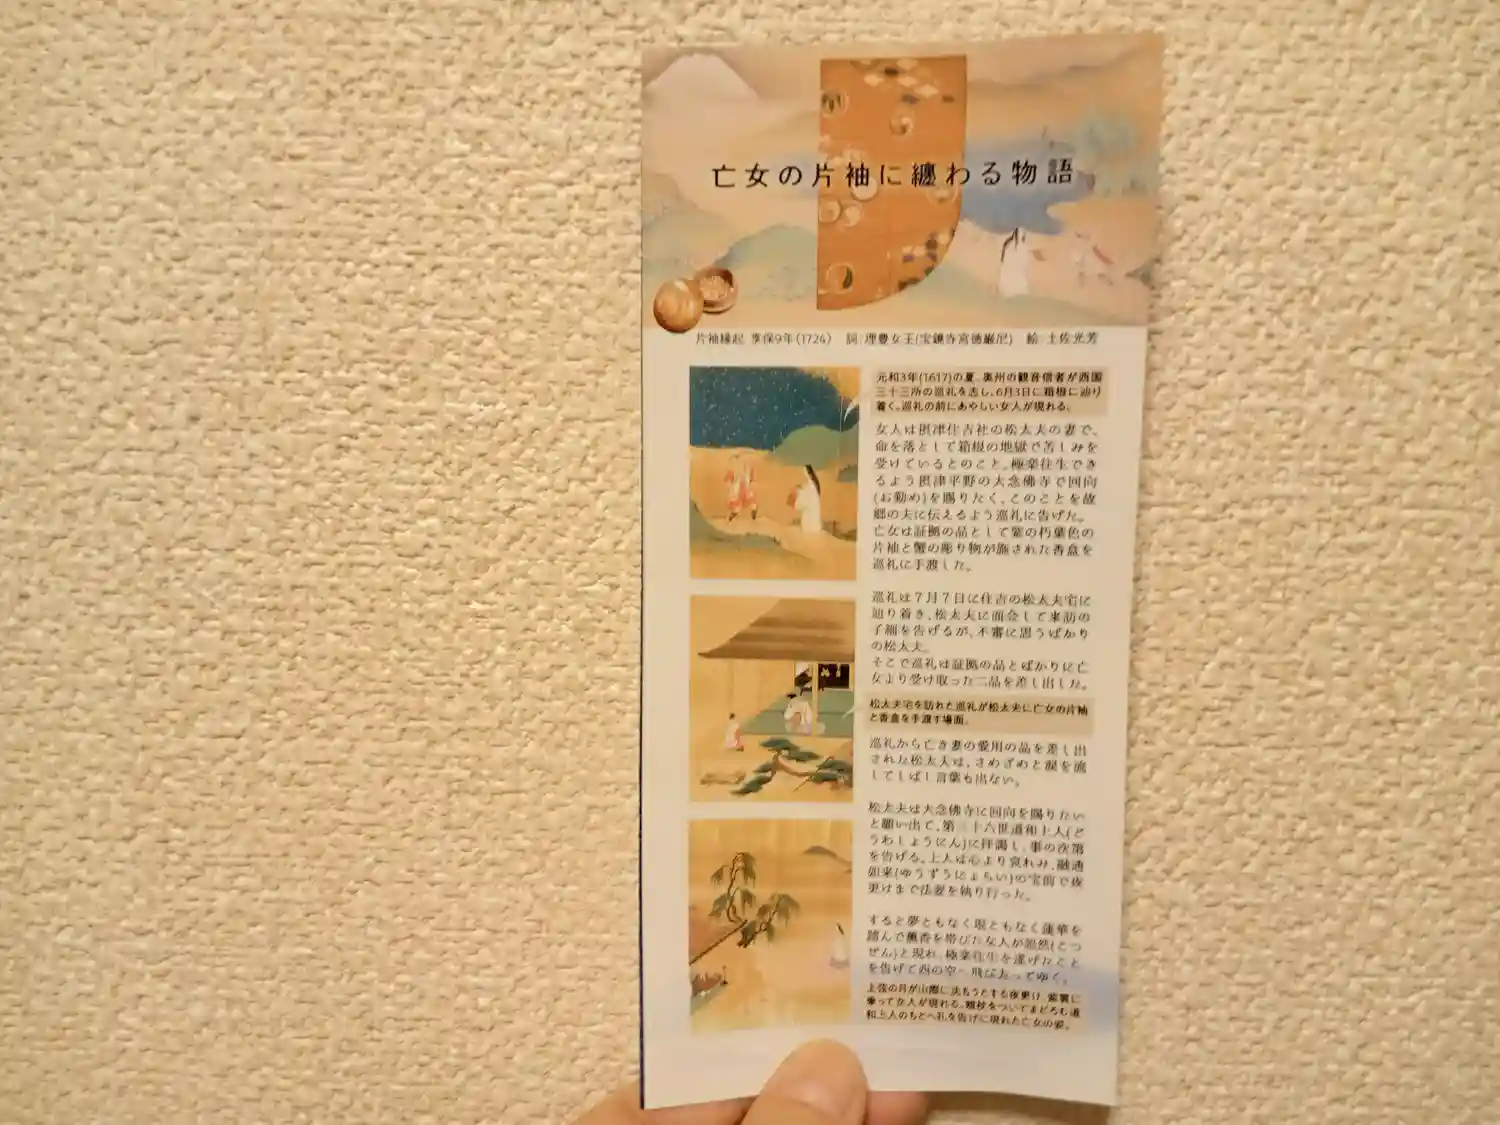 亡女の片袖に纏わる物語
片袖縁起 享保9年(1724) 詞:理豊女王(宝鏡寺宮徳巌尼) 絵 土佐光芳
元和3年(1617)の夏、奥州の観音信者が西国
三十三所の巡礼を志し、6月3日に箱根に辿り
着く。巡礼の前にあやしい女人が現れる。
女人は摂津住吉社の松太夫の妻で、
命を落として箱根の地獄で苦しみを
受けているとのこと。極楽往生でき
るよう摂津平野の大念佛寺で回向
(お勤め)を賜りたく、このことを故
郷の夫に伝えるよう巡礼に告げた。
亡女は証拠の品として鸞の朽葉色の
片袖と蟹の彫り物が施された香盒を
巡礼に手渡した。
巡礼は7月7日に住吉の松太夫宅に
辿り着き、松太夫に面会して来訪の
子細を告げるが、不審に思うばかり
の松太夫。
そこで巡礼は証拠の品とばかりに亡
女より受け取った二品を差し出した。
松太夫宅を訪れた巡礼が松太夫に亡女の片袖
と香盒を手渡す場面。
巡礼から亡き妻の愛用の品を差し出
された松太夫は、さめざめと涙を流
してしばし言葉も出ない。
松太夫は大念佛寺に回向を賜りたい
と願い出て、第三十六世道和上人(ど
うわしょうにん)に拝謁し、事の次第
を告げる。上人は心より哀れみ、融通
如来(ゆうずうにょらい)の宝前で夜
更けまで法要を執り行った。
すると夢ともなく現ともなく蓮華を
踏んで薫香を帯びた女人が忽然(こつ
ぜん)と現れ、極楽往生を遂げたこと
を告げて西の空へ飛び去ってゆく。
上弦の月が山際に沈もうとする夜更け、紫雲に
乗って女人が現れる。頬杖をついてまどろむ道
和上人のもとへ礼を告げに現れた亡女の姿。